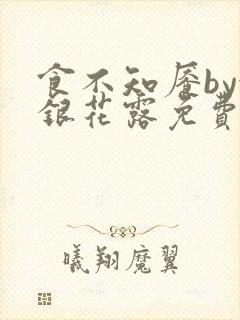 食不知餍by
銀花露免費
曦翔魔翼